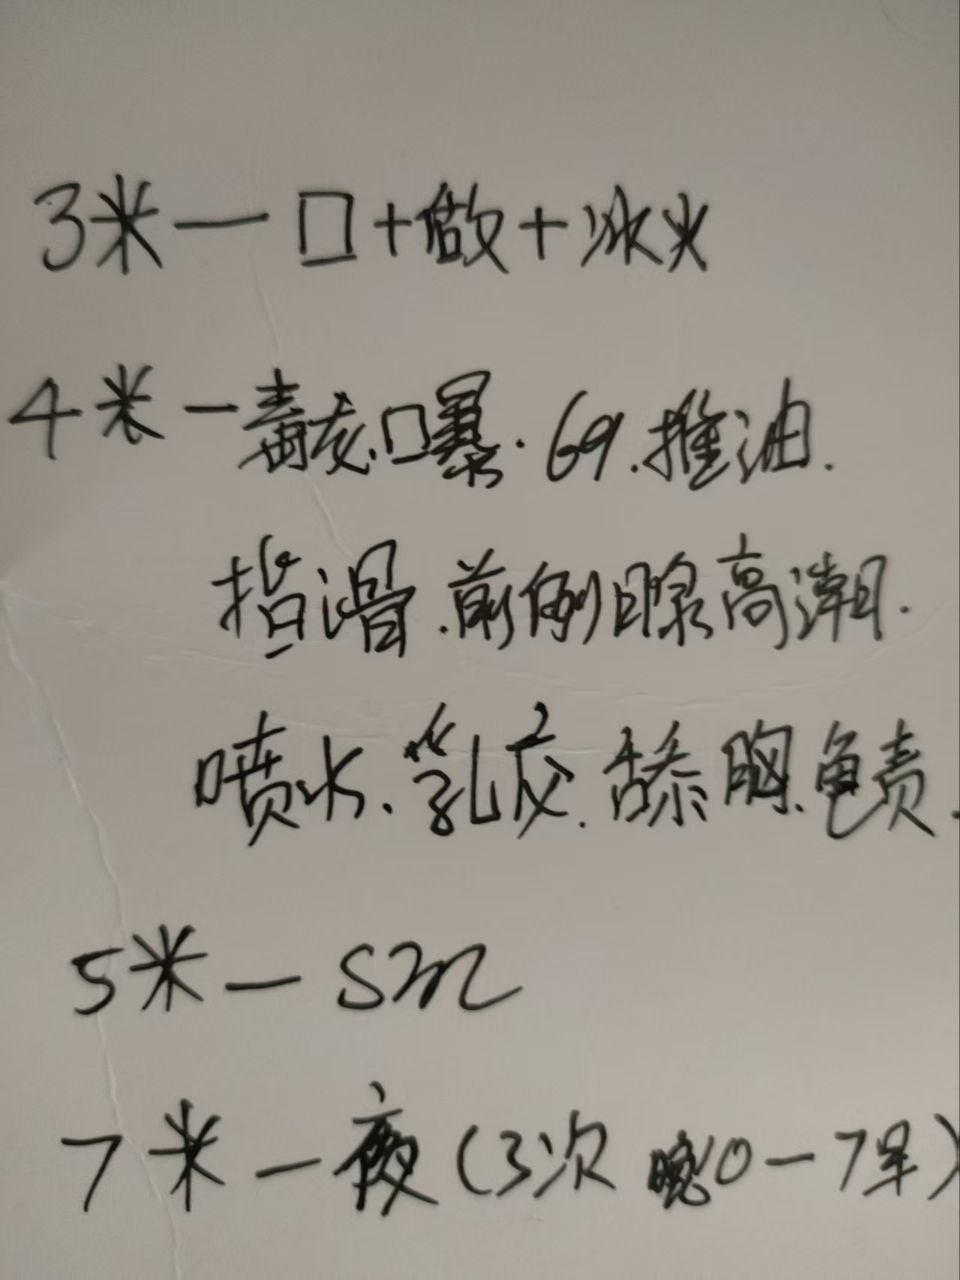 3米一口+做+冰火
4米一毒龙.口爆.69.推油.
指滑.前列腺高潮.
喷水.乳交.舔胸.龟责.
5米一sm
7米一夜(3次 晚10-7早)